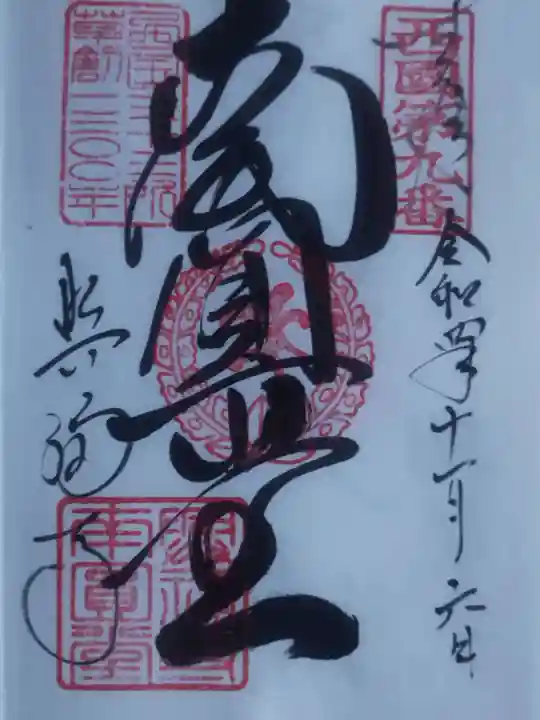 奉拝
西國第九番
令和四年十一月六日
南圓堂
西国三十三所
草創一三〇〇年
興福寺